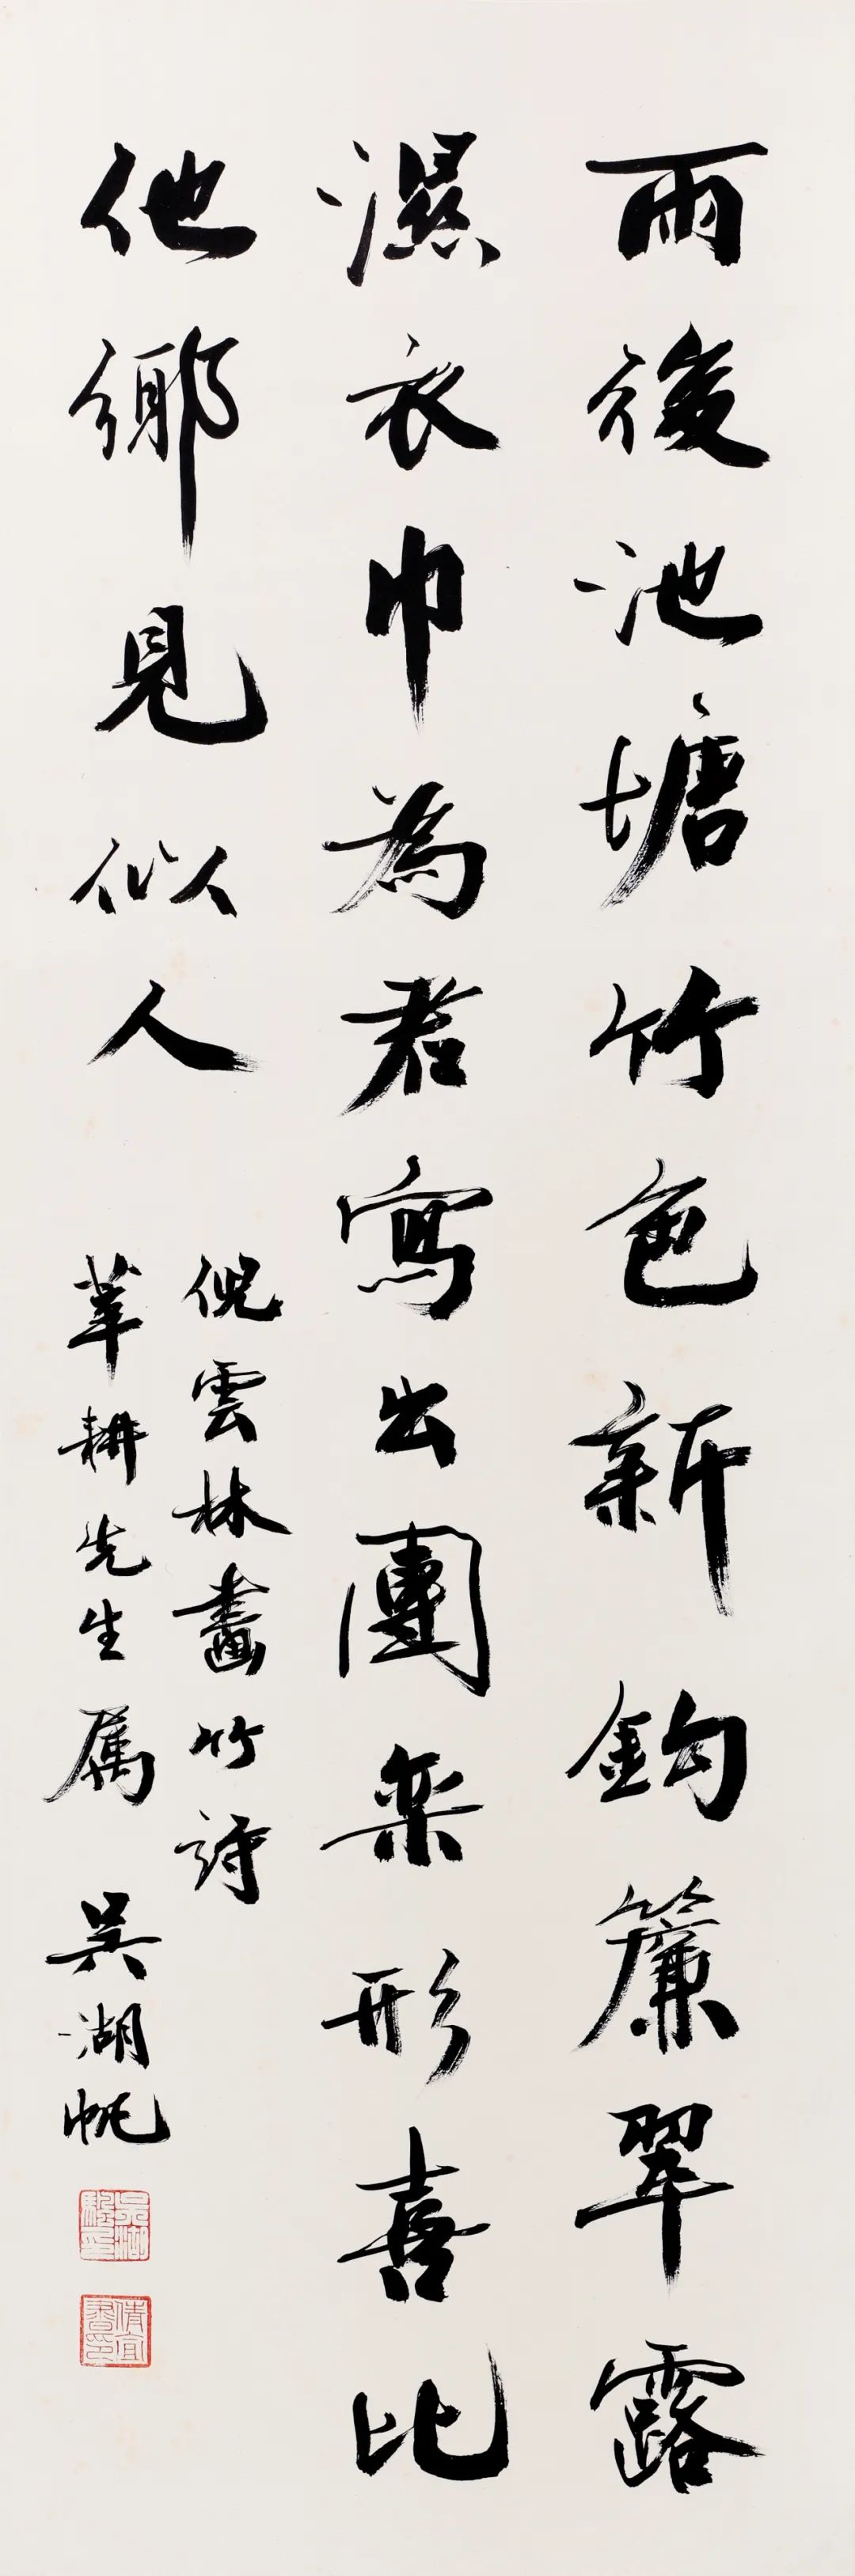 雨後池塘竹色新鉤簾翠露
濕衣巾為君寫出團欒形喜比
他鄉見似人
倪雲林畫竹詩
莘耕先生属 吳湖帆
吳湖驅印
倩宜書印